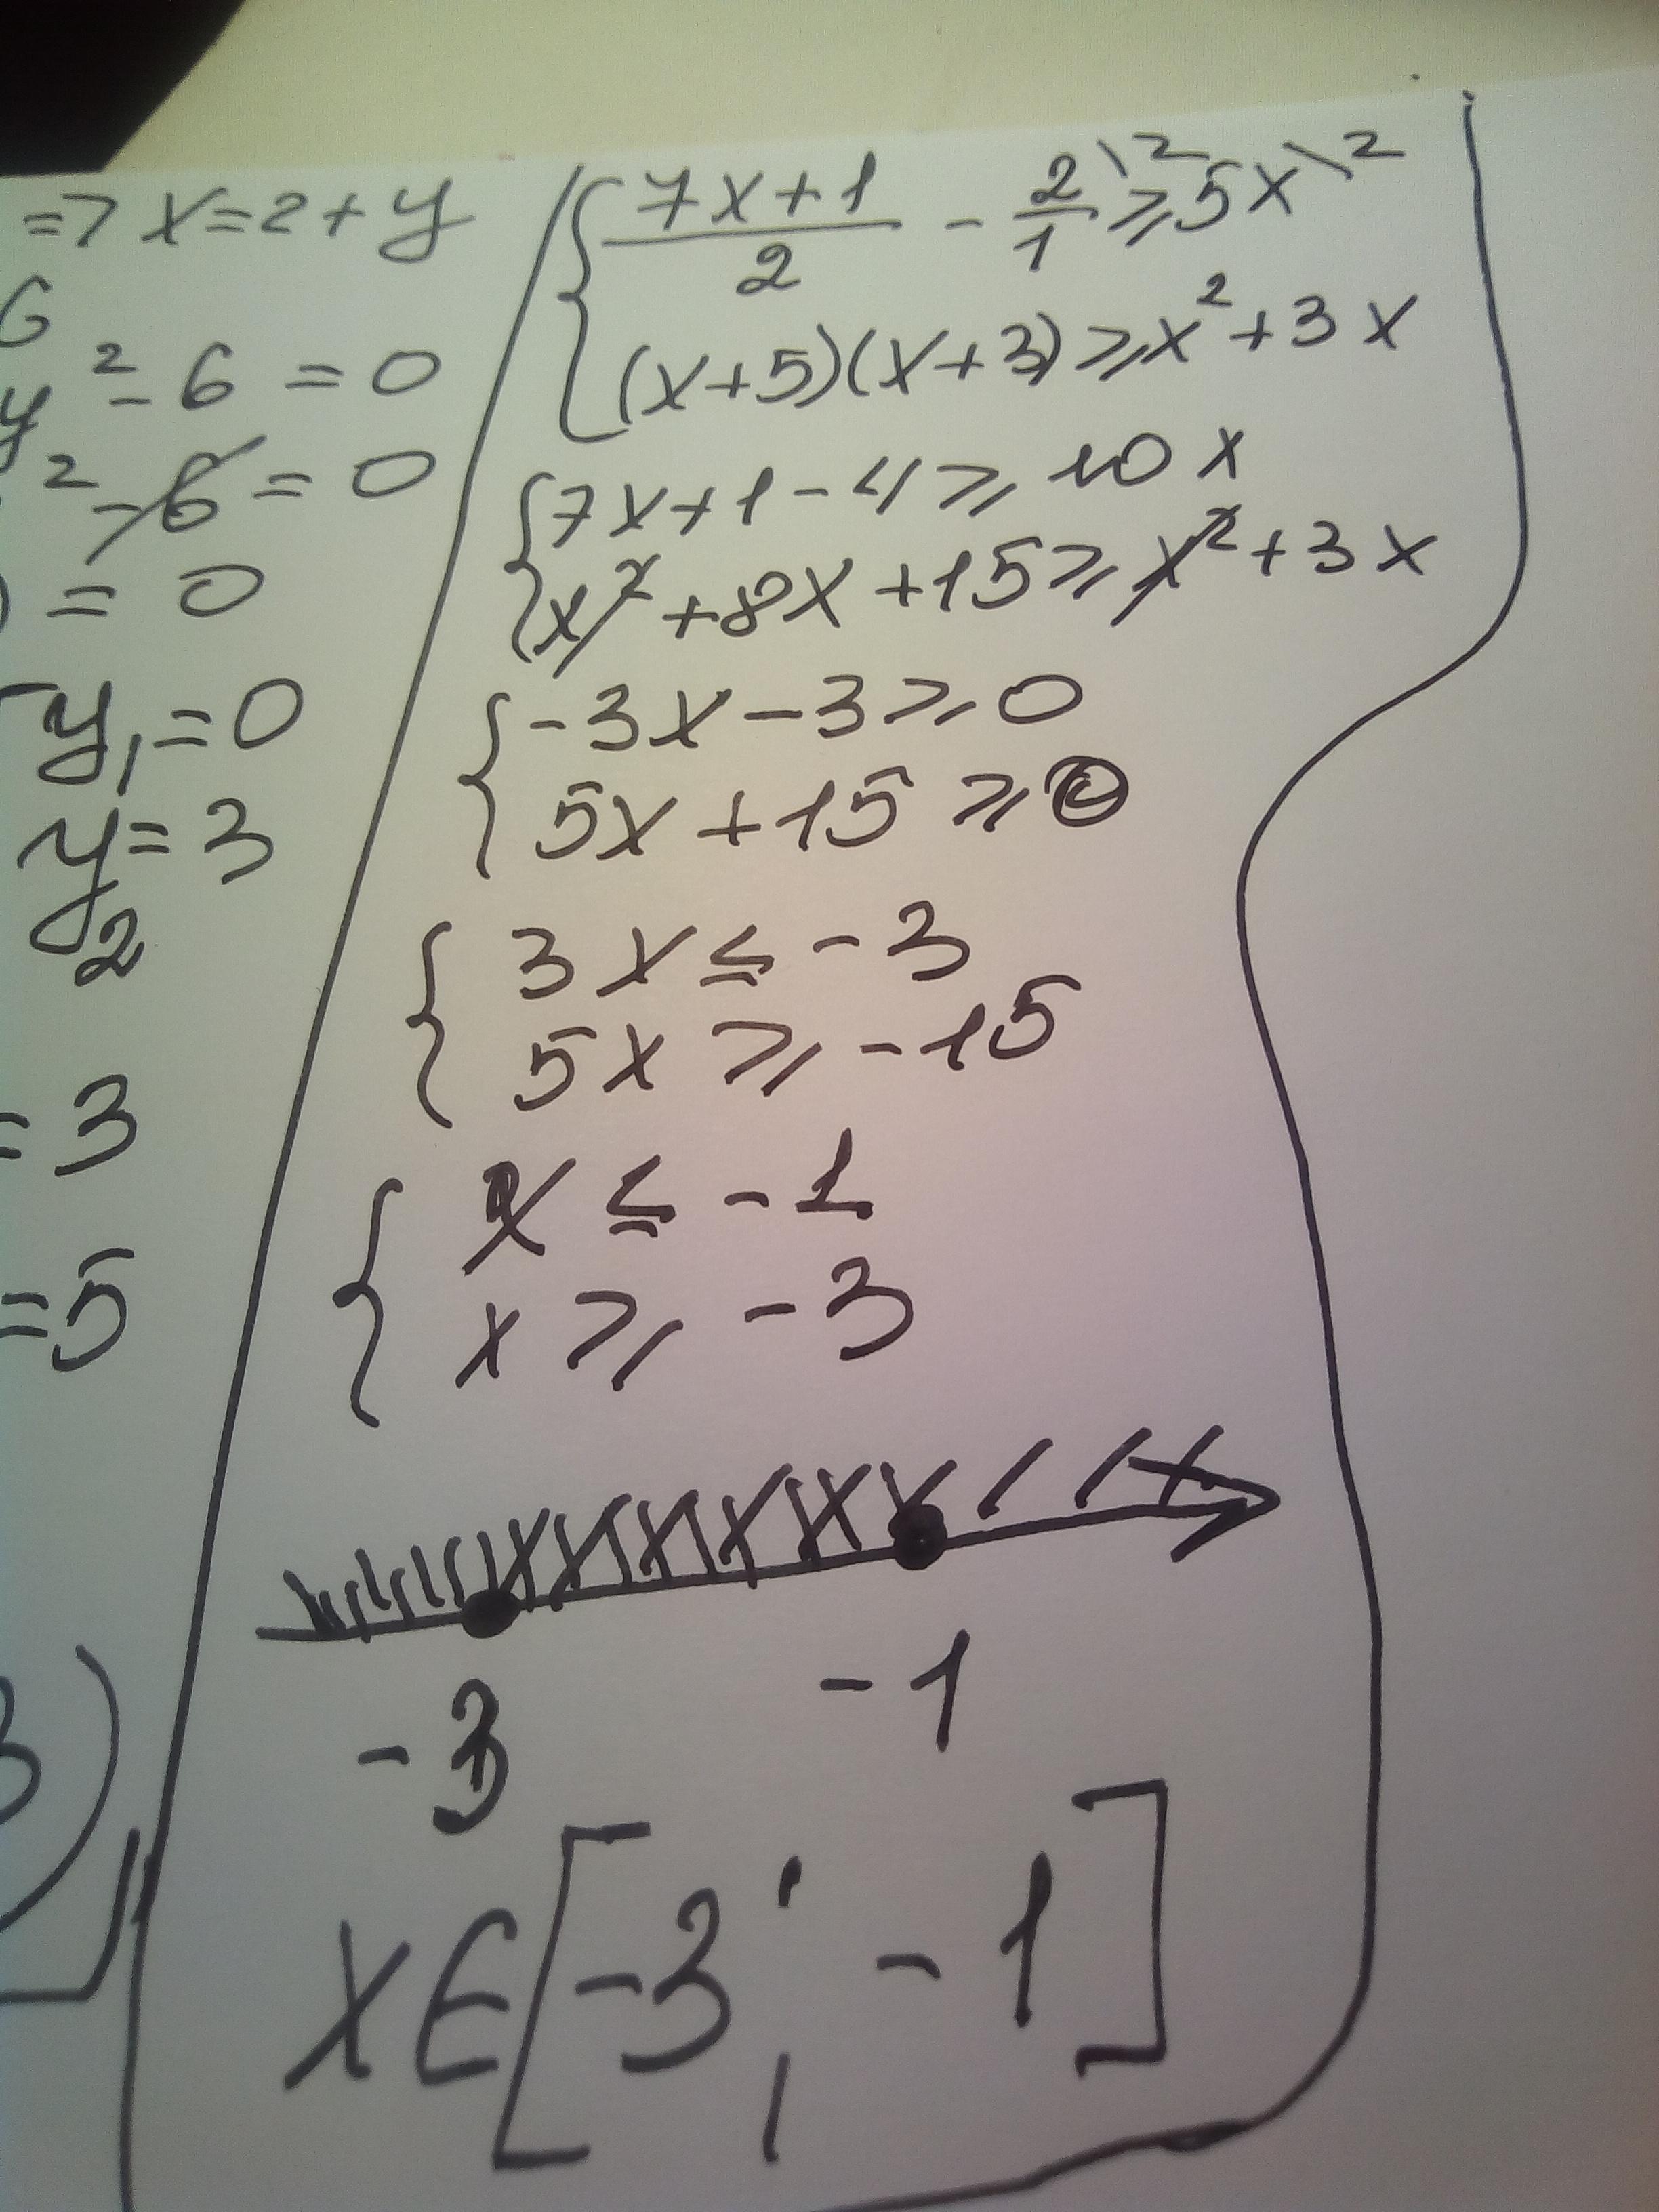 => x=2+y
6
y² - 6 = 0
² - 6 = 0
) = 0
y₁ = 0
y₂ = 3
= 3
= 5
3)
{ (7x+1)/2 - 2/1 \2 ≥ 5x \2
(x+5)(x+3) ≥ x² + 3x
{ 7x+1-4 ≥ 10x
x² + 8x + 15 ≥ x² + 3x
{ -3x - 3 ≥ 0
5x + 15 ≥ 0
{ 3x ≤ -3
5x ≥ -15
{ x ≤ -1
x ≥ -3
-3 -1
x ∈ [-3; -1]